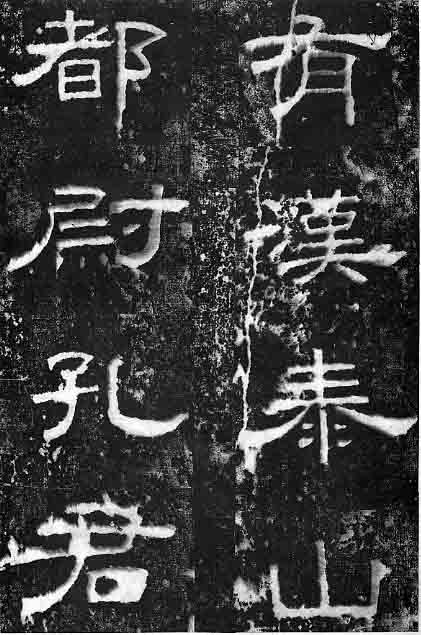 有漢泰山
都尉孔君